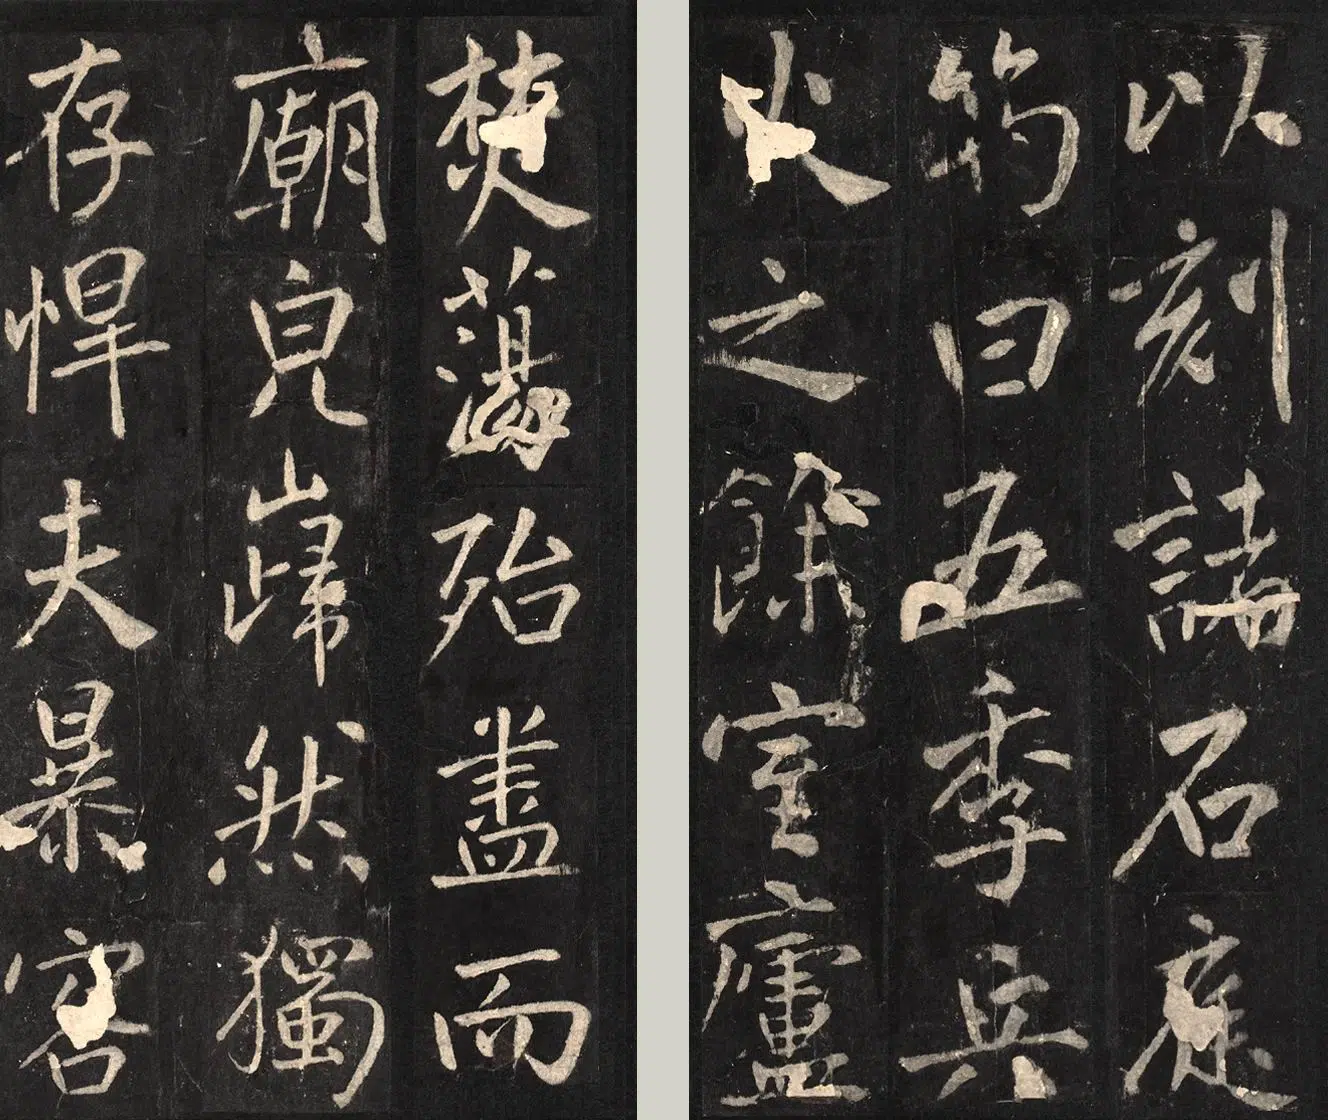 以刻諸石庭
筠曰五季兵
火之餘室廬
焚蕩殆盡而
廟皃巋然獨
存悍夫暴客